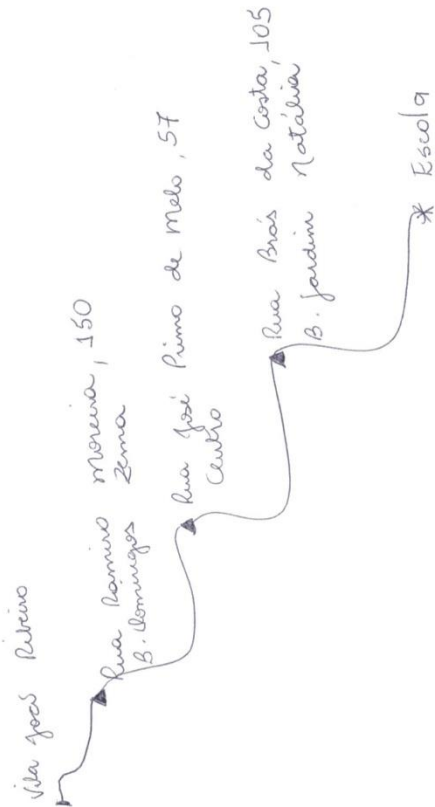 Vila José Ribeiro
Rua Ramiro Moreira, 150
B. Domingos Zema
Rua José Primo de Melo, 57
Centro
Rua Brás da Costa, 105
B. Jardim Natália
Escola